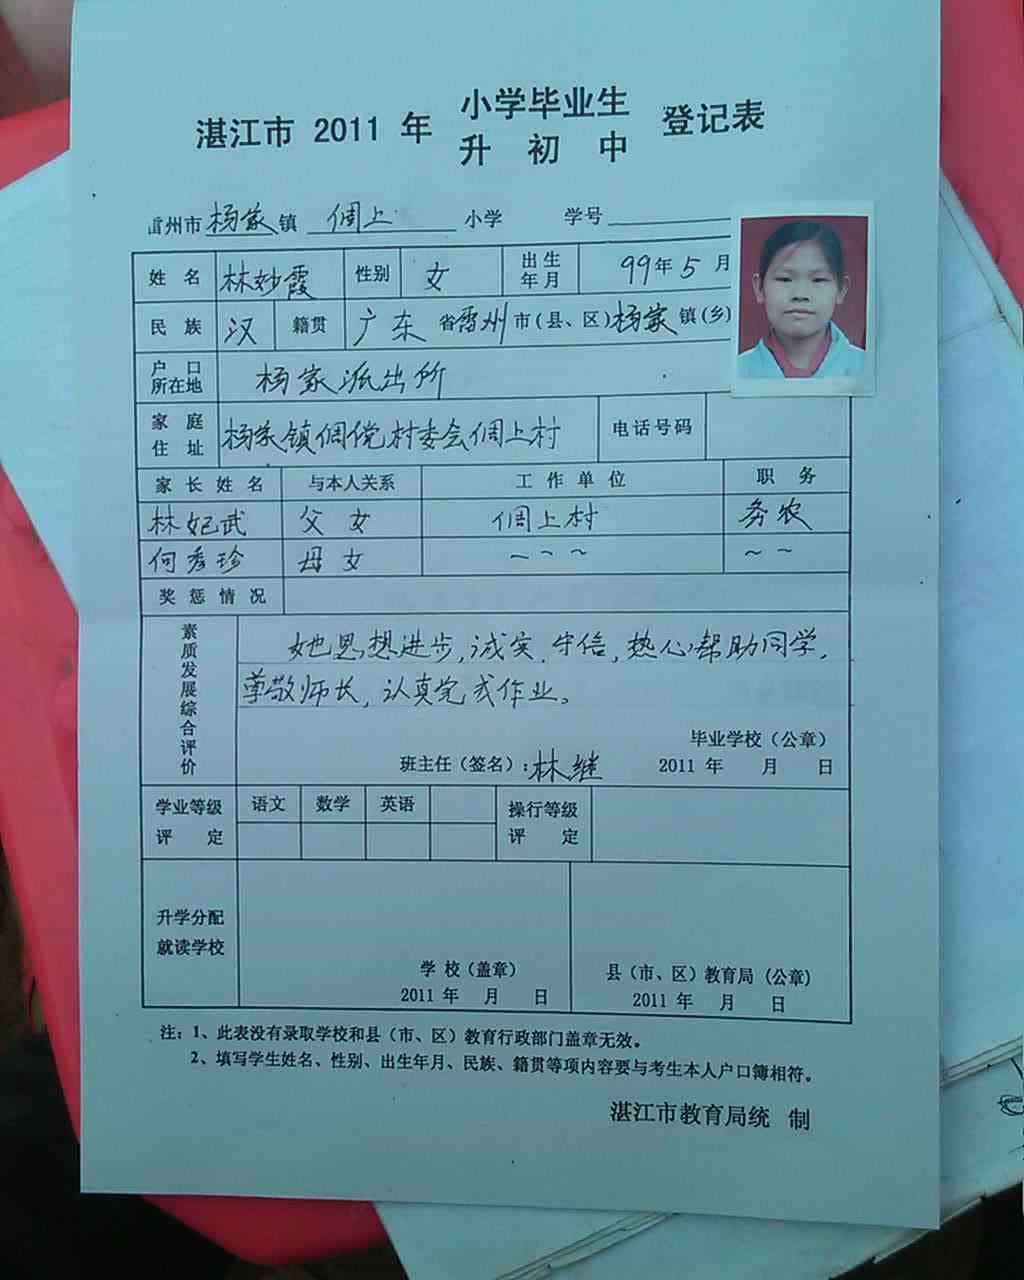 湛江市 2011 年 小学毕业生 登记表
升 初 中
雷州市杨家镇 倜上 小学 学号
姓 名 林妙霞 性别 女 出生年月 99年5月
民 族 汉 籍贯 广东省雷州市(县、区)杨家镇(乡)
户 口 所在地 杨家派出所
家 庭 住 址 杨家镇倜傥村委会倜上村 电话号码
家 长 姓 名 与本人关系 工 作 单 位 职 务
林妃武 父女 倜上村 务农
何秀珍 母女 ~ ~ ~ ~ ~
奖 惩 情 况
素质发展综合评价
她思想进步,诚实、守信,热心帮助同学,
尊敬师长,认真完成作业。
毕业学校(公章)
班主任(签名):林继 2011 年 月 日
学业等级评 定 语文 数学 英语 操行等级评 定
升学分配
就读学校
学 校(盖章) 县(市、区)教育局(公章)
2011 年 月 日 2011 年 月 日
注:1、此表没有录取学校和县(市、区)教育行政部门盖章无效。
2、填写学生姓名、性别、出生年月、民族、籍贯等项内容要与考生本人户口簿相符。
湛江市教育局统 制